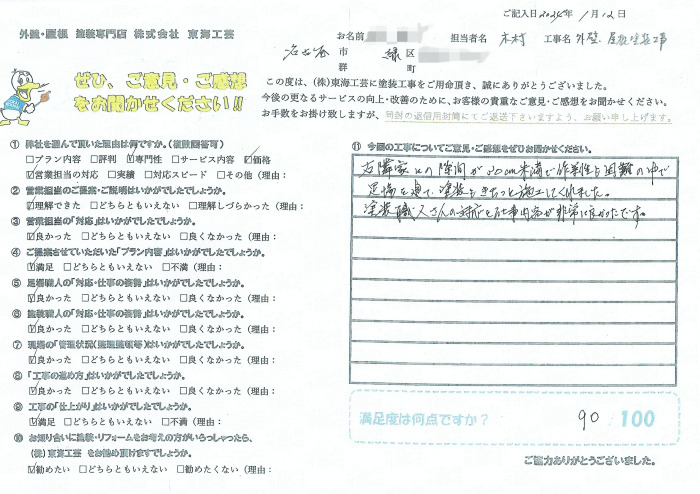 ご記入日2024年 1月12日
外壁・屋根 塗装専門店 株式会社 東海工芸
お名前 担当者名 木村 工事名 外壁、屋根塗装工事
名古屋 市 緑 区
郡 町
ぜひ、ご意見・ご感想
をお聞かせください!!
この度は、(株)東海工芸に塗装工事をご用命頂き、誠にありがとうございました。
今後の更なるサービスの向上・改善のために、お客様の貴重なご意見・ご感想をお聞かせください。
お手数をお掛け致しますが、同封の返信用封筒にてご返送下さいますよう、お願い申し上げます。
① 弊社を選んで頂いた理由は何ですか。(複数回答可)
□プラン内容 □評判 ☑専門性 □サービス内容 ☑価格
☑営業担当の対応 □実績 □対応スピード □その他(理由:
② 営業担当のご提案・ご説明はいかがでしたでしょうか。
☑理解できた □どちらともいえない □理解しづらかった(理由:
③ 営業担当の「対応」はいかがでしたでしょうか。
☑良かった □どちらともいえない □良くなかった(理由:
④ ご提案させていただいた「プラン内容」はいかがでしたでしょうか。
☑満足 □どちらともいえない □不満(理由:
⑤ 足場職人の「対応・仕事の姿勢」はいかがでしたでしょうか。
☑良かった □どちらともいえない □良くなかった(理由:
⑥ 塗装職人の「対応・仕事の姿勢」はいかがでしたでしょうか。
☑良かった □どちらともいえない □良くなかった(理由:
⑦ 現場の「管理状況(整理整頓等)はいかがでしたでしょうか。
☑良かった □どちらともいえない □良くなかった(理由:
⑧ 「工事の進め方」はいかがでしたでしょうか。
☑良かった □どちらともいえない □良くなかった(理由:
⑨ 工事の「仕上がり」はいかがでしたでしょうか。
☑満足 □どちらともいえない □不満(理由:
⑩ お知り合いに塗装・リフォームをお考えの方がいらっしゃったら、
(株)東海工芸 をお勧め頂けますでしょうか。
☑勧めたい □どちらともいえない □勧めたくない(理由:
⑪ 今回の工事についてご意見・ご感想をぜひお聞かせください。
右隣家との隙間が30cm未満で作業性も困難の中で
足場を建て、塗装もきちっと施工してくれました。
塗装職人さんの対応と仕事内容が非常に良かったです。
満足度は何点ですか? 90/100
ご協力ありがとうございました。